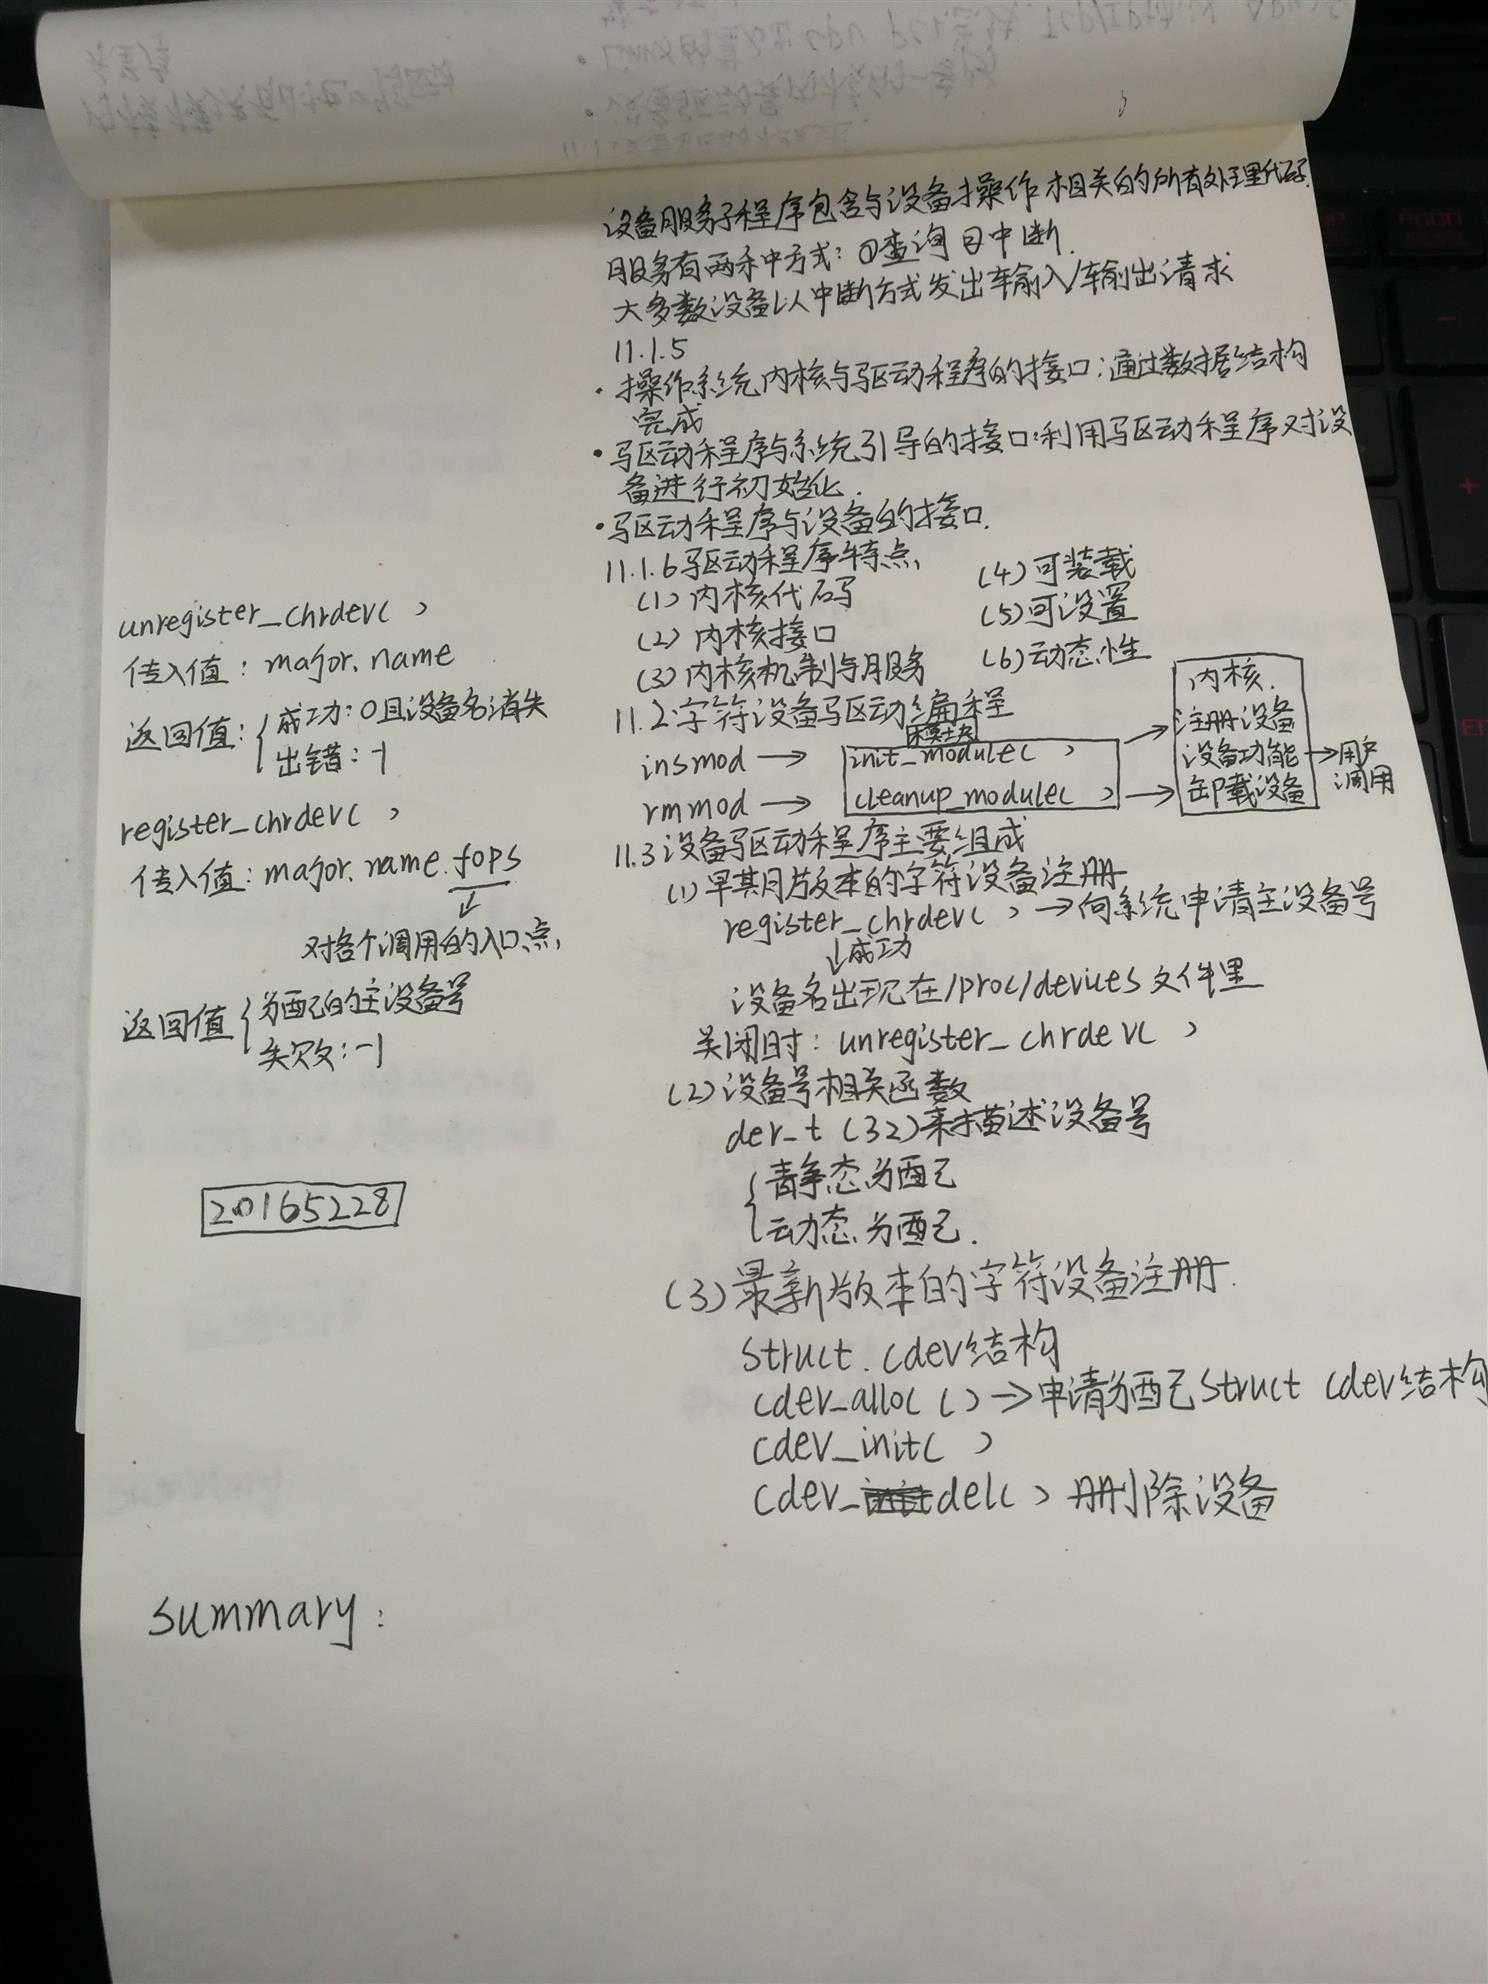 设备服务子程序包含与设备操作相关的所有处理代码.
服务有两种方式: ①查询 ②中断.
大多数设备以中断方式发出输入/输出请求
11.1.5
·操作系统内核与驱动程序的接口:通过数据结构
完成
·驱动程序与系统引导的接口:利用驱动程序对设
备进行初始化.
·驱动程序与设备的接口.
11.1.6驱动程序特点,
(1)内核代码
(2)内核接口
(3)内核机制与服务
(4)可装载
(5)可设置
(6)动态性
11.2字符设备驱动编程
模块
insmod → init_module( )
rmmod → cleanup_module( )
内核.
注册设备
设备功能
卸载设备
→用户
调用
11.3设备驱动程序主要组成
(1)早期版本的字符设备注册
register_chrdev( )→向系统申请主设备号
↓成功
设备名出现在/proc/devices文件里
关闭时: unregister_chrdev( )
(2)设备号相关函数
dev_t (32)来描述设备号
{静态分配
动态分配.
(3)最新版本的字符设备注册.
struct. cdev结构
cdev_alloc()→申请分配struct cdev结构
cdev_init( )
cdev_del( ) 删除设备
unregister_chrdev( )
传入值: major. name
返回值:{成功:0且设备名消失
出错:-1
register_chrdev( )
传入值: major. name. fops
↓
对各个调用的入口点,
返回值{分配的主设备号
失败:-1
20165228
summary: